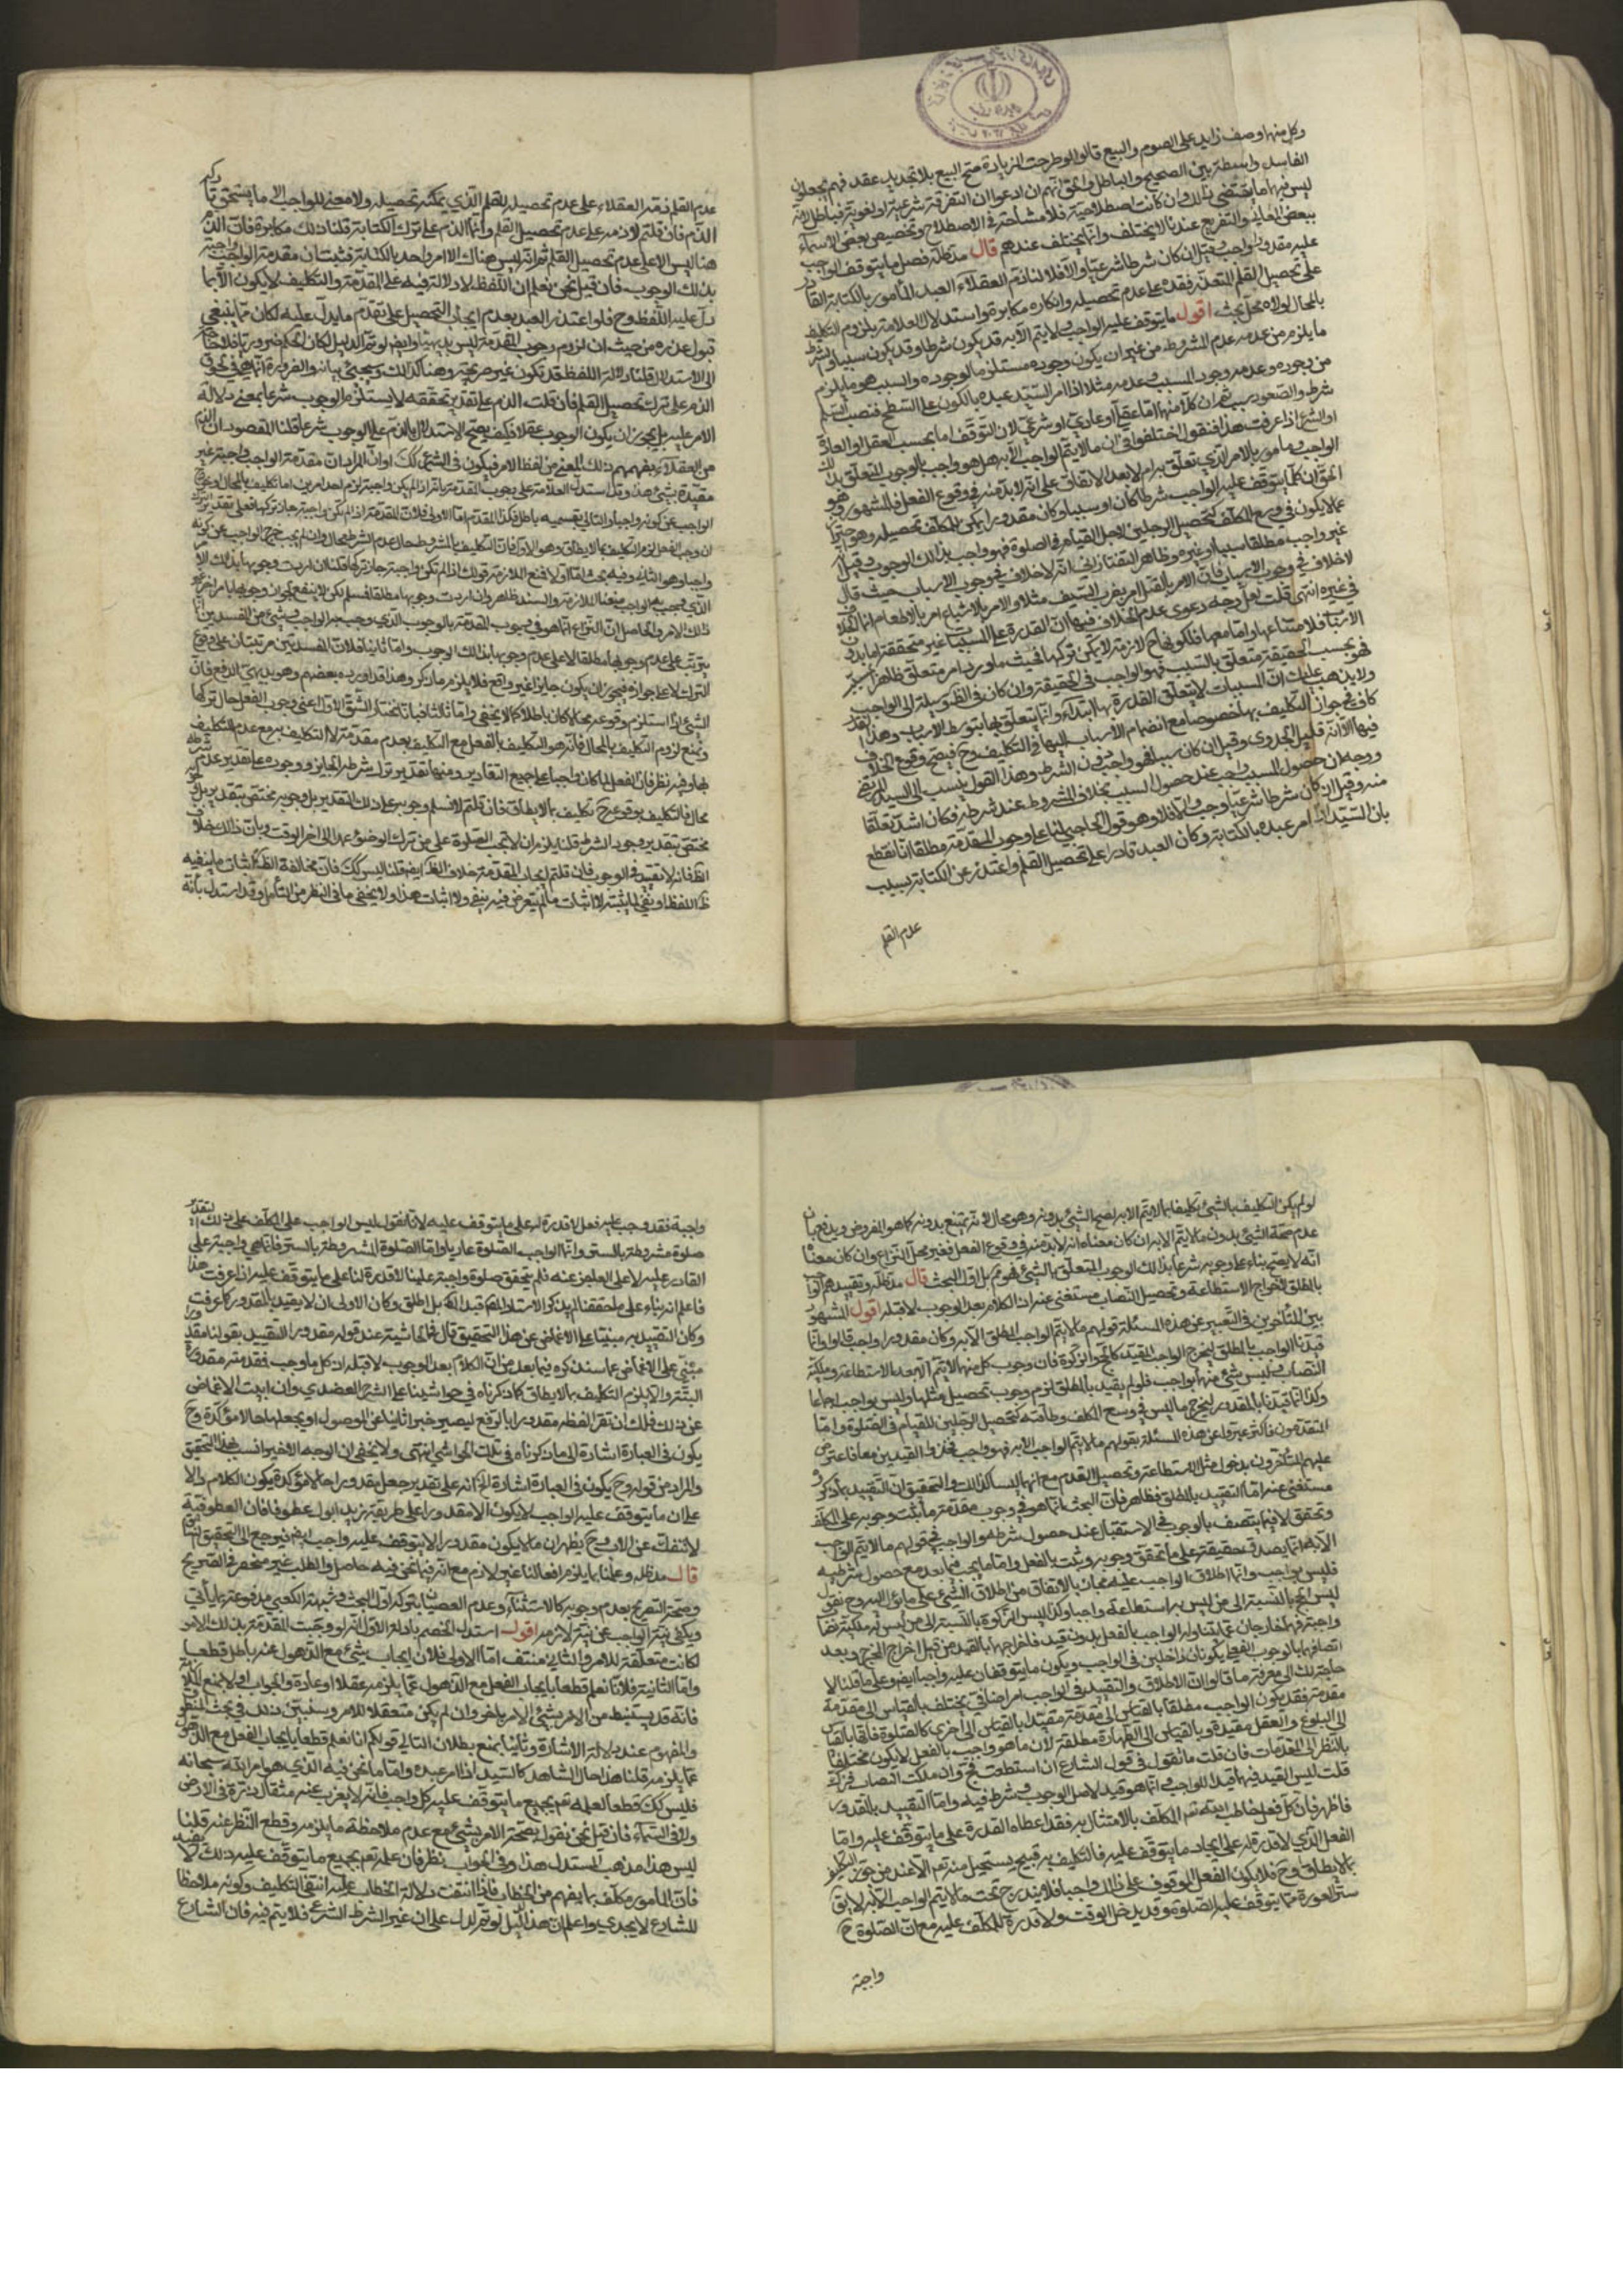 وكل منهما وصف زايد على الصوم والبيع قالوا لو طرحت الزيادة صح البيع بلا تجديد عقد فهم يجعلون
الفاسد واسطة بين الصحيح والباطل والحق انهم ان ادعوا ان التفرقة شرعية او لغوية فباطل لانه
ليس فيهما ما يقتضي ذلك وان كانت اصطلاحية فلا مشاحة في الاصطلاح وتخصيص بعض الاسماء
ببعض المعاني والتفريع عندنا لا يختلف وانما يختلف عندهم قال مد ظله فصل ما يتوقف الواجب
عليه مقدورا واجب وقيل ان كان شرطا شرعيا والا فلا لنا ذم العقلاء العبد المأمور بالكتابة القادر
على تحصيل القلم المتعذر فقده على عدم تحصيله وانكاره مكابرة واستدلال العلامة بلزوم التكليف
بالمحال لولاه محل بحث اقول ما يتوقف عليه الواجب ولا يتم الا به قد يكون شرطا وقد يكون سببا والشرط
ما يلزم من عدمه عدم المشروط من غير ان يكون وجوده مستلزما لوجوده والسبب هو ما يلزم
من وجوده وجود المسبب وعدمه مثلا اذا امر السيد عبده بالكون على السطح فنصب السلم
شرط والصعود سبب ثم ان كلا منهما اما عقلي او عادي او شرعي لان التوقف اما بحسب العقل او العادة
او الشرع اذا عرفت هذا فنقول اختلفوا في ان ما لا يتم الواجب الا به هل هو واجب بالوجوب المتعلق بذلك
الواجب ومأمور بالامر الذي تعلق به ام لا بعد الاتفاق على انه لا بد منه في وقوع الفعل فالمشهور وهو
الحق ان كلما يتوقف عليه الواجب شرطا كان او سببا وكان مقدورا يمكن للمكلف تحصيله وهو احترازا
عما لا يكون في وسع المكلف كتحصيل الرجلين لاجل القيام في الصلوة فهو واجب بذلك الوجوب وقيل
غير واجب مطلقا سببا او غيره وظاهر التفتازاني انه لا خلاف في وجوب الاسباب حيث قال
لا خلاف في وجوب الاسباب فان الامر بالقتل امر بضرب السيف مثلا والامر بالاشباع امر بالاطعام انما الخلاف
في غيره انتهى قلت لعل وجه دعوى عدم الخلاف فيها ان القدرة على المسببات غير متحققة اما بدون
الاسباب فلامتناعها واما معها فلكونها ح لازمة لا يمكن تركها فحيث ما ورد امر متعلق ظاهرا بمسبب
فهو بحسب الحقيقة متعلق بالسبب فهو الواجب في الحقيقة وان كان في الظ وسيلة الى الواجب
ولا يذهب عليك ان المسببات لا يتعلق القدرة بها ابتداء وانما يتعلق بها بتوسط الاسباب وهذا القدر
كاف في جواز التكليف بها خصوصا مع انضمام الاسباب اليها في التكليف وح فيصح وقوع الخلاف
فيها الا انه قليل الجدوى وقيل ان كان سببا فهو واجب دون الشرط وهذا القول ينسب الى السيد المرتضى
ووجه ان حصول المسبب واجب عند حصول السبب بخلاف المشروط عند شرطه فكان اشد تعلقا
منه وقيل ان كان شرطا شرعيا وجب والا فلا وهو قول الحاجبي لنا على وجوب المقدمة مطلقا انا نقطع
بان السيد اذا امر عبده بالكتابة وكان العبد قادرا على تحصيل القلم واعتذر عن الكتابة بسبب
عدم القلم
عدم القلم ذمه العقلاء على عدم تحصيله للقلم الذي يمكنه تحصيله ولا معنى للواجب الا ما يستحق تاركه
الذم فان قلتم لا ذم له على عدم تحصيل القلم وانما الذم على ترك الكتابة قلنا ذلك مكابرة فان الذم
هنا ليس الا على عدم تحصيل القلم ثم انه ليس هناك الا امر واحد بالكتابة فثبت ان مقدمة الواجب واجبة
بذلك الوجوب فان قيل نحن نعلم ان اللفظ لا دلالة فيه على المقدمة والتكليف لا يكون الا بما
دل عليه اللفظ وح فلو اعتذر العبد بعدم ايجاب التحصيل على تقدم ما يدل عليه لكان مما ينبغي
قبول عذره من حيث ان لزوم وجوب المقدمة ليس بديهيا وايض لو تم الدليل لكان الحكم ضروريا فلا حاجة
الى الاستدلال قلنا دلالة اللفظ قد تكون غير صريحة وهنا كذلك وسيجئ بيانه والضرورة انما هي في لحوق
الذم على ترك تحصيل القلم فان قلت الذم على تقدير تحققه لا يستلزم الوجوب شرعا بمعنى دلالة
الامر عليه بل يجوز ان يكون الوجوب عقلا فكيف يصح الاستدلال بالذم على الوجوب شرعا قلنا المقصود ان الذم
من العقلاء بفهمهم ذلك المعنى من لفظ الامر فيكون في الشرعي كك او ان المراد ان مقدمة الواجب واجبة غير
مقيدة بشئ هذا وقد استدل العلامة على وجوب المقدمة بانه اذا لم يكن واجبة لزم احد امرين اما تكليف بالمحال او خروج
الواجب عن كونه واجبا والتالي بقسميه باطل فكذا المقدم اما الاولى فلان المقدمة اذا لم تكن واجبة جاز تركها فعلى تقدير الترك
ان وجب الفعل لزم التكليف بما لا يطاق وهو الاول فان التكليف بالمشروط حال عدم الشرط محال وان لم يجب خرج الواجب عن كونه
واجبا وهو الثاني وفيه بحث اما اولا فنمنع اللازمة قولك اذا لم تكن واجبة جاز تركها قلنا ان اردت وجوبها بذلك الامر
الذي وجب به الواجب منعنا اللازمة والسند ظاهر وان اردت وجوبها مطلقا فمسلم لكن لا ينفع لجواز وجوبها بامر اخر غير
ذلك الامر والحاصل ان النزاع انما هو في وجوب المقدمة بالوجوب الذي وجب به الواجب وشئ من المفسدين لا
يترتب على عدم وجوبها مطلقا لا على عدم وجوبها بذلك الوجوب واما ثانيا فلان المفسدتين مرتبتان على وقوع
الترك لا على جوازه فيجوز ان يكون جايزا غير واقع فلا يلزم ما ذكر وهذا قد اورده بعضهم وهو بديهي الدفع فان
الشئ اذا استلزم وقوعه محالا كان باطلا كما لا يخفى واما ثالثا فبانا نختار الشق الاول اعني وجوب الفعل حال تركها
ونمنع لزوم التكليف بالمحال فانه هو التكليف بالفعل مع التكليف بعدم مقدمته لا التكليف به مع عدم التكليف
بها وفيه نظر فان الفعل لما كان واجبا على جميع التقادير ومنها تقدير ترك شرطه الجايز ووجوده على تقدير عدم شرطه
محال فالتكليف بوقوعه ح تكليف بما لا يطاق فان قلتم لا نسلم وجوبه على ذلك التقدير بل وجوبه مختص بتقدير
مختص بتقدير وجود الشرط قلنا يلزم ان لا تجب الصلوة على من ترك الوضوء عمدا الى اخر الوقت وبان ذلك خلاف
الظ فانه لا تقييد في الوجوب فان قلتم ايجاب المقدمة خلاف الظ ايض قلنا ليس كك فان مخالفة الظ اثبات ما ينفيه
ظ اللفظ او نفي لما يثبته لا اثبات ما لم يتعرض فيه بنفي ولا اثبات هذا ولا يخفى ما في النظر من التأمل وقد استدل بانه
لو لم يكن التكليف بالشئ تكليفا بما لا يتم الا به لصح الشئ بدونه وهو محال لانه يمتنع بدونه كما هو المفروض ويدفع بان
عدم صحة الشئ بدون ما لا يتم الا به ان كان معناه انه لا بد منه في وقوع الفعل فغير محل النزاع وان كان معناه
انه لا يصح بناء على وجوبه شرعا بذلك الوجوب المتعلق بالشئ فهو مم بل اول البحث قال مد ظله وتقييدهم الواجب
بالمطلق لاخراج الاستطاعة وتحصيل النصاب مستغنى عنه ان الكلام بعد الوجوب لا قبله اقول المشهور
بين المتأخرين في التعبير عن هذه المسئلة قولهم ما لا يتم الواجب المطلق الا به وكان مقدورا واجب قالوا وانما
قيدنا الواجب بالمطلق ليخرج الواجب المقيد كالحج والزكوة فان وجوب كل منهما لا يتم الا بعد الاستطاعة وملكة
النصاب وليس شئ منهما بواجب فلو لم يقيد بالمطلق لزم وجوب تحصيل مثلهما وليس بواجب اجماعا
وكذا انما قيدنا بالمقدور ليخرج ما ليس في وسع المكلف وطاقته كتحصيل الرجلين للقيام في الصلوة واما
المتقدمون فانهم عبروا عن هذه المسئلة بقولهم ما لا يتم الواجب الا به فهو واجب فحذفوا القيدين معا فاعترض
عليهم المتأخرون بدخول مثل الاستطاعة وتحصيل القدم مع انهما ليسا كذلك والتحقيق ان التقييد بما ذكر
مستغنى عنه اما التقييد بالمطلق فظاهر فان البحث انما هو في وجوب مقدمة ما ثبت وجوبه على المكلف
وتحقق لا فيما يتصف بالوجوب في الاستقبال عند حصول شرطه والواجب في قولهم ما لا يتم الواجب
الا به انما يصدق حقيقة على ما تحقق وجوبه وثبت بالفعل واما ما يجب فيما بعد مع حصول شرطه
فليس بواجب وانما اطلاق الواجب عليه مجاز بالاتفاق من اطلاق الشئ على ما يؤل اليه وح نقول
ليس الحج بالنسبة الى من ليس به استطاعة واجبا وكذا ليس الزكوة بالنسبة الى من ليس له ملكية نصاب
واجبة فهما خارجان عما يتناوله الواجب بالفعل بدون قيد فاخراجهما بالقيد من قبيل اخراج المخرج وبعد
اتصافهما بالوجوب الفعلي يكونان داخلين في الواجب ويكون ما يتوقفان عليه واجبا ايض وعلى ما قلنا لا
حاجة لك الى معرفة ما قالوا ان الاطلاق والتقييد في الواجب امر اضافي يختلف بالقياس الى مقدمة
مقدمة فقد يكون الواجب مطلقا بالقياس الى مقدمة مقيدا بالقياس الى اخرى كالصلوة فانها بالقياس
الى البلوغ والعقل مقيدة وبالقياس الى الطهارة مطلقة لان ما هو واجب بالفعل لا يكون مختلفا
بالنظر الى المقدمات فان قلت ما تقول في قول الشارع ان استطعت فحج وان ملكت النصاب فزك
قلت ليس القيد فيهما قيدا للواجب انما هو قيد لاصل الوجوب وشرط فيه واما التقييد بالمقدور
فاظهر فان كل فعل خاطب الله تعم المكلف بالامتثال به فقد اعطاه القدرة على ما يتوقف عليه واما
الفعل الذي لا قدرة له على ايجاد ما يتوقف عليه فالتكليف به قبيح يستحيل منه تعم الا عند من جوز التكليف
بما لا يطاق وح فلا يكون الفعل الموقوف على ذلك واجبا فلا يندرج تحت ما لا يتم الواجب الا به لا يق
ستر العورة مما يتوقف عليه الصلوة وقد يدخل الوقت ولا قدرة للمكلف عليه مع ان الصلوة ح
واجبة
واجبة فقد وجب عليه فعل لا قدرة له على ما يتوقف عليه لانا نقول ليس الواجب على المكلف على ذلك التقدير
صلوة مشروطة بالستر وانما الواجب الصلوة عاريا واما الصلوة المشروطة بالستر فانما هي واجبة على
القادر عليه لا على العاجز عنه فلم يتحقق صلوة واجبة علينا لا قدرة لنا على ما يتوقف عليه اذا عرفت هذا
فاعلم انه بناء على ما حققنا لم يذكر الاستاد المقدور قبل الكل بل اطلق وكان الاولى ان لا يقيد بالمقدور كما عرفت
وكان التقييد به مبنيا على الاغماض عن هذا التحقيق قال في الحاشية عند قوله مقدورا التقييد بقولنا مقدورا
مبني على الاغماض عما سنذكره فيما بعد من ان الكلام بعد الوجوب لا قبله ان كل ما وجب فقد مته مقدورة
البتة والا يلزم التكليف بما لا يطاق كما ذكرناه في حواشينا على الشرح العضدي وان ابيت الاغماض
عن ذلك فلك ان تقرا لفظه مقدور بالرفع ليصير خبرا ثانيا عن الموصول او يجعلها حالا مؤكدة وح
يكون في العبارة اشارة الى ما ذكرناه في تلك الحواشي انتهى ولا يخفى ان الوجه الاخير انسب بهذا التحقيق
والمراد من قوله وح يكون في العبارة اشارة الخ انه على تقدير جعل مقدورا حالا مؤكدة يكون الكلام دالا
على ان ما يتوقف عليه الواجب لا يكون الا مقدورا على طريقة زيد ابوك عطوفا فان العطوفية
لا تنفك عن الاب وح يظهر ان ما لا يكون مقدورا لا يتوقف عليه واجب ايض فيرجع الى التحقيق السابق
قال مد ظله وعلمنا بما يلزم افعالنا غير لازم مع انه فيما نحن فيه حاصل والطلب غير منحصر في الصريح
وصحة التصريح بعدم وجوبه كالاستثناء وعدم العصيان بتركه اول البحث وشبهة الكعبي مدفوعة بما يأتي
ويكفي نية الواجب عن نية لازمه اقول استدل الخصم بادلة الاول انه لو وجبت المقدمة بذلك الامر
لكانت متعلقة للامر والتالي منتف اما الاولى فلان ايجاب شئ مع الذهول عنه باطل قطعا
واما الثانية فلانا نعلم قطعا بايجاب الفعل مع الذهول عما يلزمه عقلا او عادة والجواب اولا بمنع اللازمة
فانه قد يستنبط من الامر بشئ الامر باخر وان لم يكن متعقلا للامر وسنبين ذلك في بحث المنطوق
والمفهوم عند دلالة الاشارة وثانيا بمنع بطلان التالي قولكم انا نعلم قطعا بايجاب الفعل مع الذهول
عما يلزمه قلنا هذا حال الشاهد كالسيد اذا امر عبده واما ما نحن فيه الذي هو امر الله سبحانه
فليس كك قطعا لعلمه تعم بجميع ما يتوقف عليه كل واجب فانه لا يعزب عنه مثقال ذرة في الارض
ولا في السماء فان قيل نحن نقول بصحة الامر بشئ مع عدم ملاحظة ما يلزمه وقطع النظر عنه قلنا
ليس هذا مذهب المستدل هذا وفي الجواب نظر فان علمه تعم بجميع ما يتوقف عليه ذلك لا يفيد
فان المأمور مكلف بما يفهم من الخطاب فاذا انتفت دلالة الخطاب عليه انتفى التكليف وكونه ملاحظا
للشارع لا يجدي واعلم ان هذا الدليل لو تم لدل على ان غير الشرط الشرعي فلا يتم فيه فان الشارع